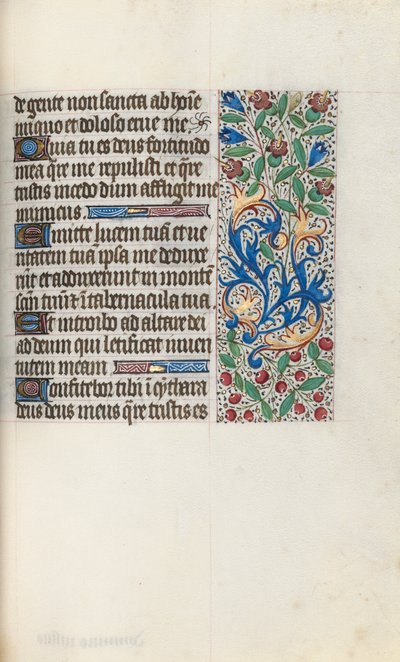 de gente non sancta ab hoīe
iniquo et doloso erue me
Quia tu es deus fortitudo
mea qre me repulisti et qre
tristis incedo dum affligit me
inimicus
Emitte lucem tuā et ue
ritatem tuā ipsa me deduxe
rūt et adduxerunt in montē
scm̄ tuū et ī tabernacula tua
Et introibo ad altare dei
ad deum qui letificat iuuen
tutem meam
Confitebor tibi ī cythara
deus deus meus qre tristis es